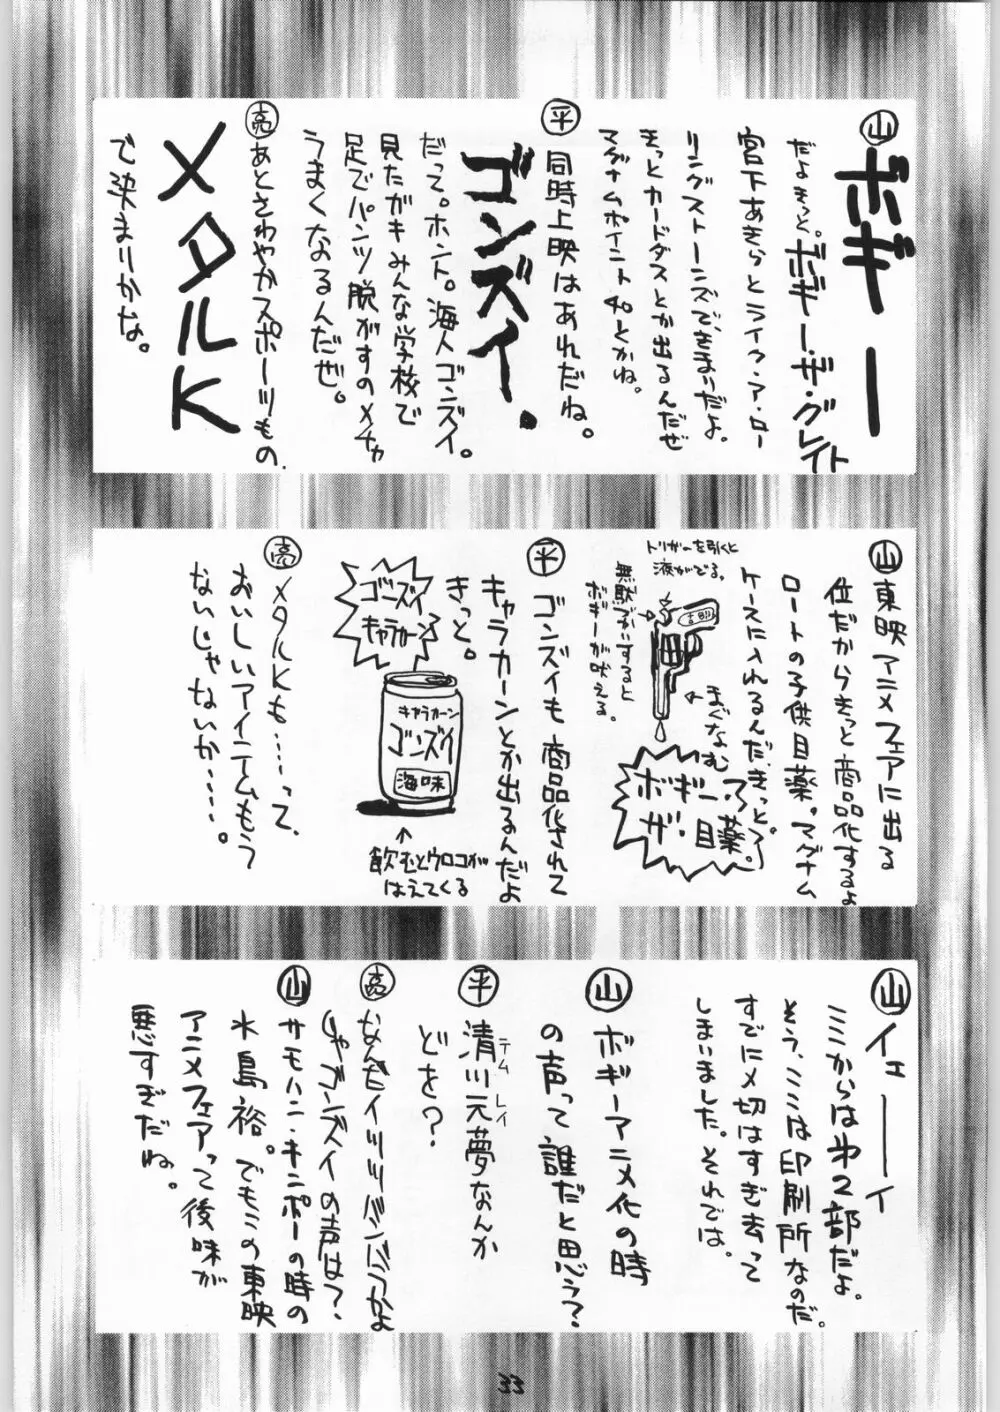 山
ボギー
だよきっと。ボギー・ザ・グレイト
宮下あきらとライク・ア・ロー
リングストーンズできまりだよ。
きっとカードダスとか出るんだぜ
マグナムポイント40とかね。
平
同時上映はあれだね。
ゴンズイ.
だって。ホント。海人ゴンズイ。
見たガキみんな学校で
足でパンツ脱がすのメチャ
うまくなるんだぜ。
亮
あとさわやかスポーツもの.
メタルK
で決まりかな。
山
東映アニメフェアに出る
位だからきっと商品化するよ
ロートの子供目薬。マグナム
ケースに入れるんだ、きっと。
トリガーを引くと
液がでる。
無駄づかいすると
ボギーが吠える。
まぐなむ
ボギー・
ザ・目薬。
平
ゴンズイも商品化されて
キャラカーンとか出るんだよ
きっと。
ゴーズイ
キャラカーン
キャラカーン
ゴンズイ
海味
飲むとウロコが
はえてくる
亮
メタルKも……って、
おいしいアイテムもう
ないじゃないか……。
山
イェーイ
ここからは第2部だよ。
そう、ここは印刷所なのだ。
すでに〆切はすぎ去って
しまいました。それでは。
山
ボギーアニメ化の時
の声って誰だと思う？
平
清川元夢なんか
テム レイ
どを？
亮
じゃゴンズイの声は？
山
サモハン・キンポーの時の
水島裕。でもこの東映
アニメフェアって後味が
悪すぎだね。
33